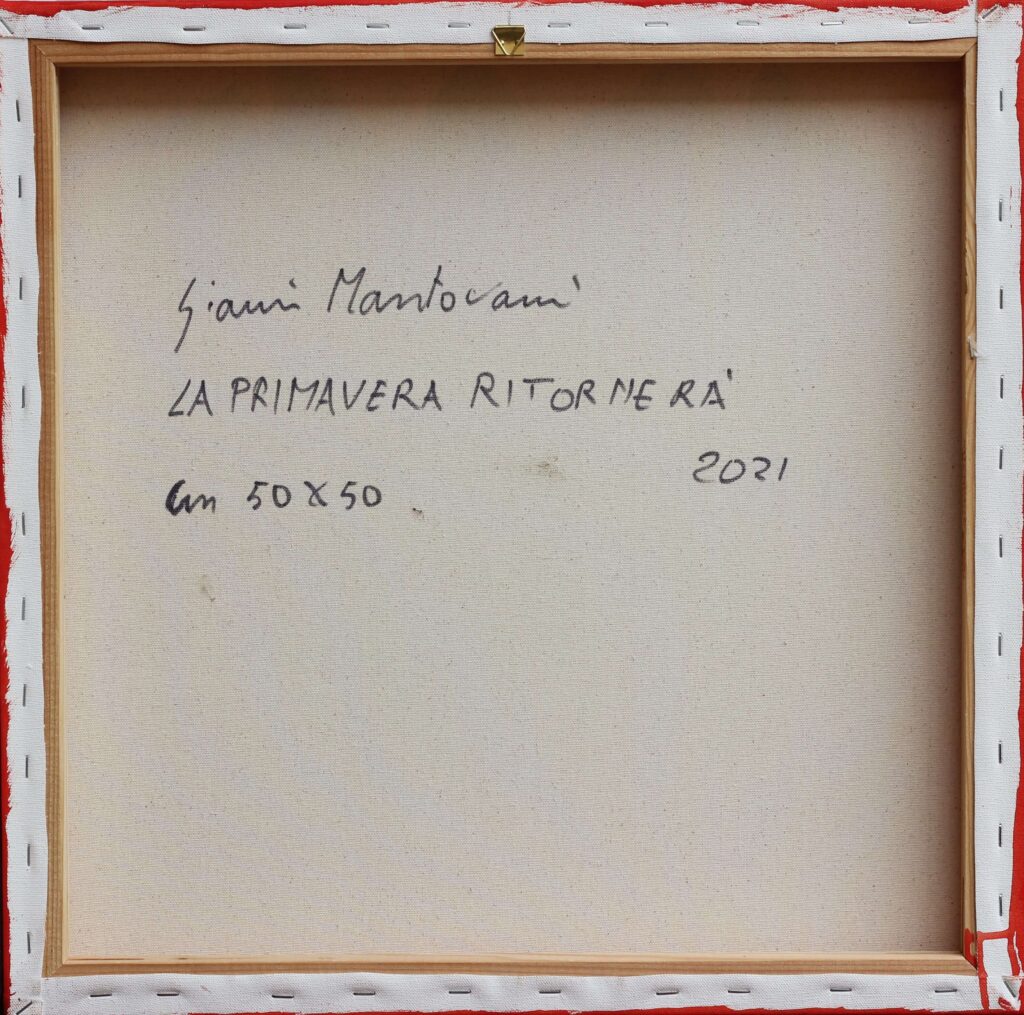 Gianni Mantovani
LA PRIMAVERA RITORNERÀ
2021
cm 50X50